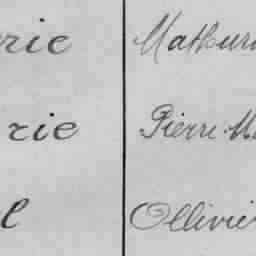 rie Mathuri
rie Pierre M
l Ollivie